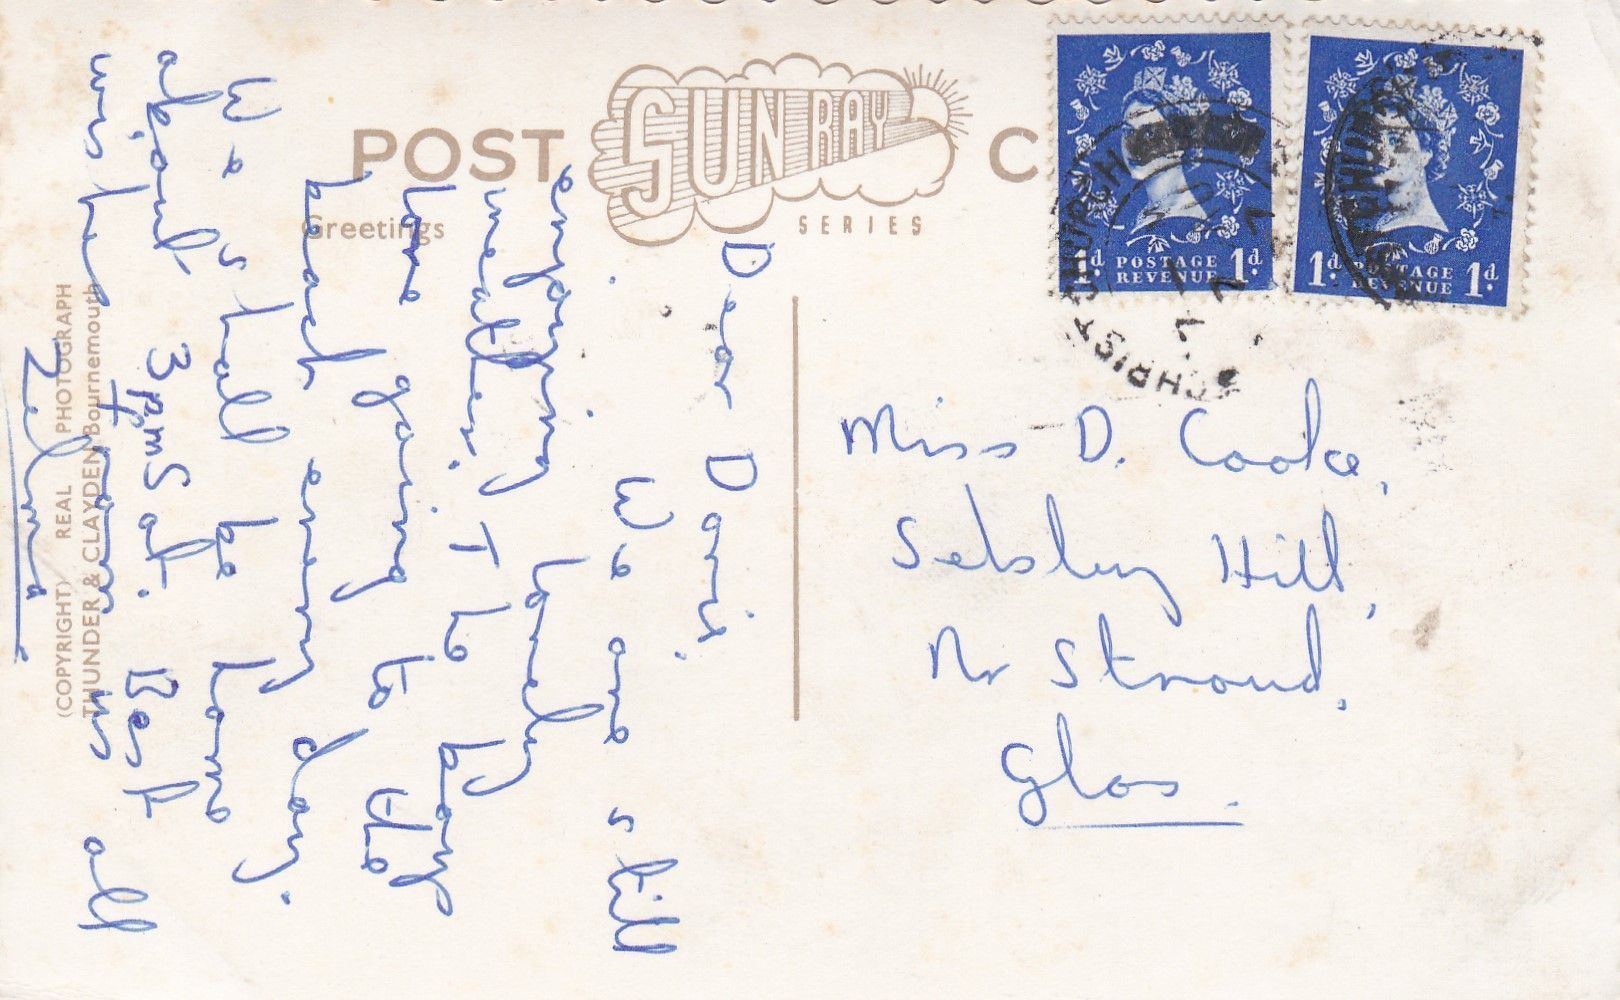 POST
SUN RAY
SERIES
C
Greetings
(COPYRIGHT) REAL PHOTOGRAPH
THUNDER & CLAYDEN Bournemouth
1d. POSTAGE REVENUE 1d.
1d. POSTAGE REVENUE 1d.
CHRISTCHURCH
Dear Doris.
We are still
enjoying lovely
weather. The boys
love going to the
beach every day.
We shall be home
about 3pm Sat. Best
wishes from us all
Zelma
Miss D. Cooke,
Selsley Hill,
Nr Stroud,
Glos.